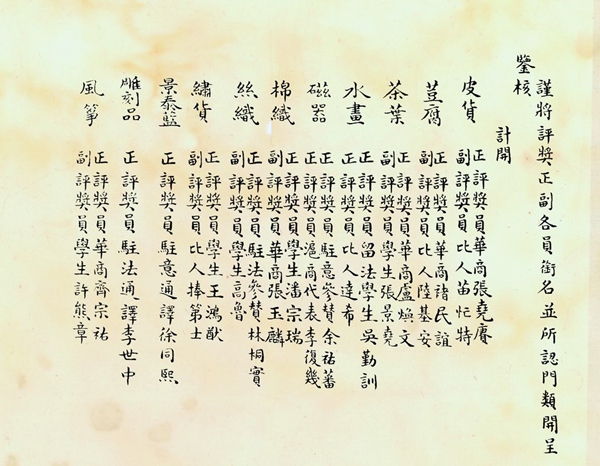 謹將評獎正副各員銜名並所認門類開呈
鑒核
計開
皮貨
正評獎員華商張堯賡
副評獎員比人茄忙特
荳腐
正評獎員華商褚民誼
副評獎員比人陸基安
茶葉
正評獎員華商盧煥文
副評獎員學生張景堯
水畫
正評獎員留法學生吳勤訓
副評獎員比人達希
磁器
正評獎員駐意參贊余祐蕃
副評獎員滬商代表李復幾
棉織
正評獎員學生潘宗瑞
副評獎員華商張玉麟
絲織
正評獎員駐法參贊林桐實
副評獎員學生高魯
繡貨
正評獎員學生王鴻猷
副評獎員比人捧第士
景泰藍
正評獎員駐意通譯徐同熙
雕刻品
正評獎員駐法通譯李世中
風箏
正評獎員華商齊宗祐
副評獎員學生許熊章